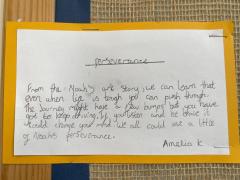 perseverance
From the Noah's ark story, we can learn that
even when life is tough you can push through.
The Journey might have a few bumps but you have
got to keep driving. If you listen and be brave it
could change you and we all could use a little
of Noah's perseverance.
Amelia K